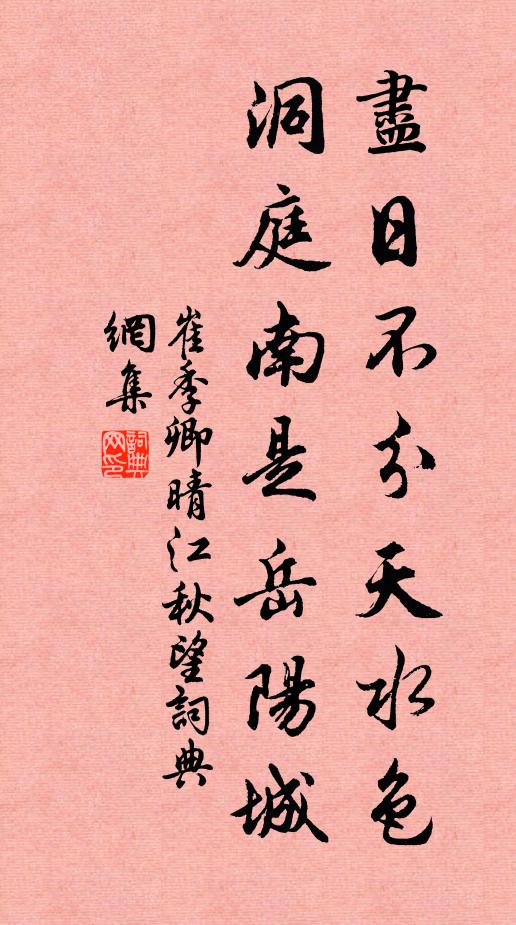 盡日不分天水色
洞庭南是岳陽城
崔季卿晴江秋望詞典
網集
詞典
网印